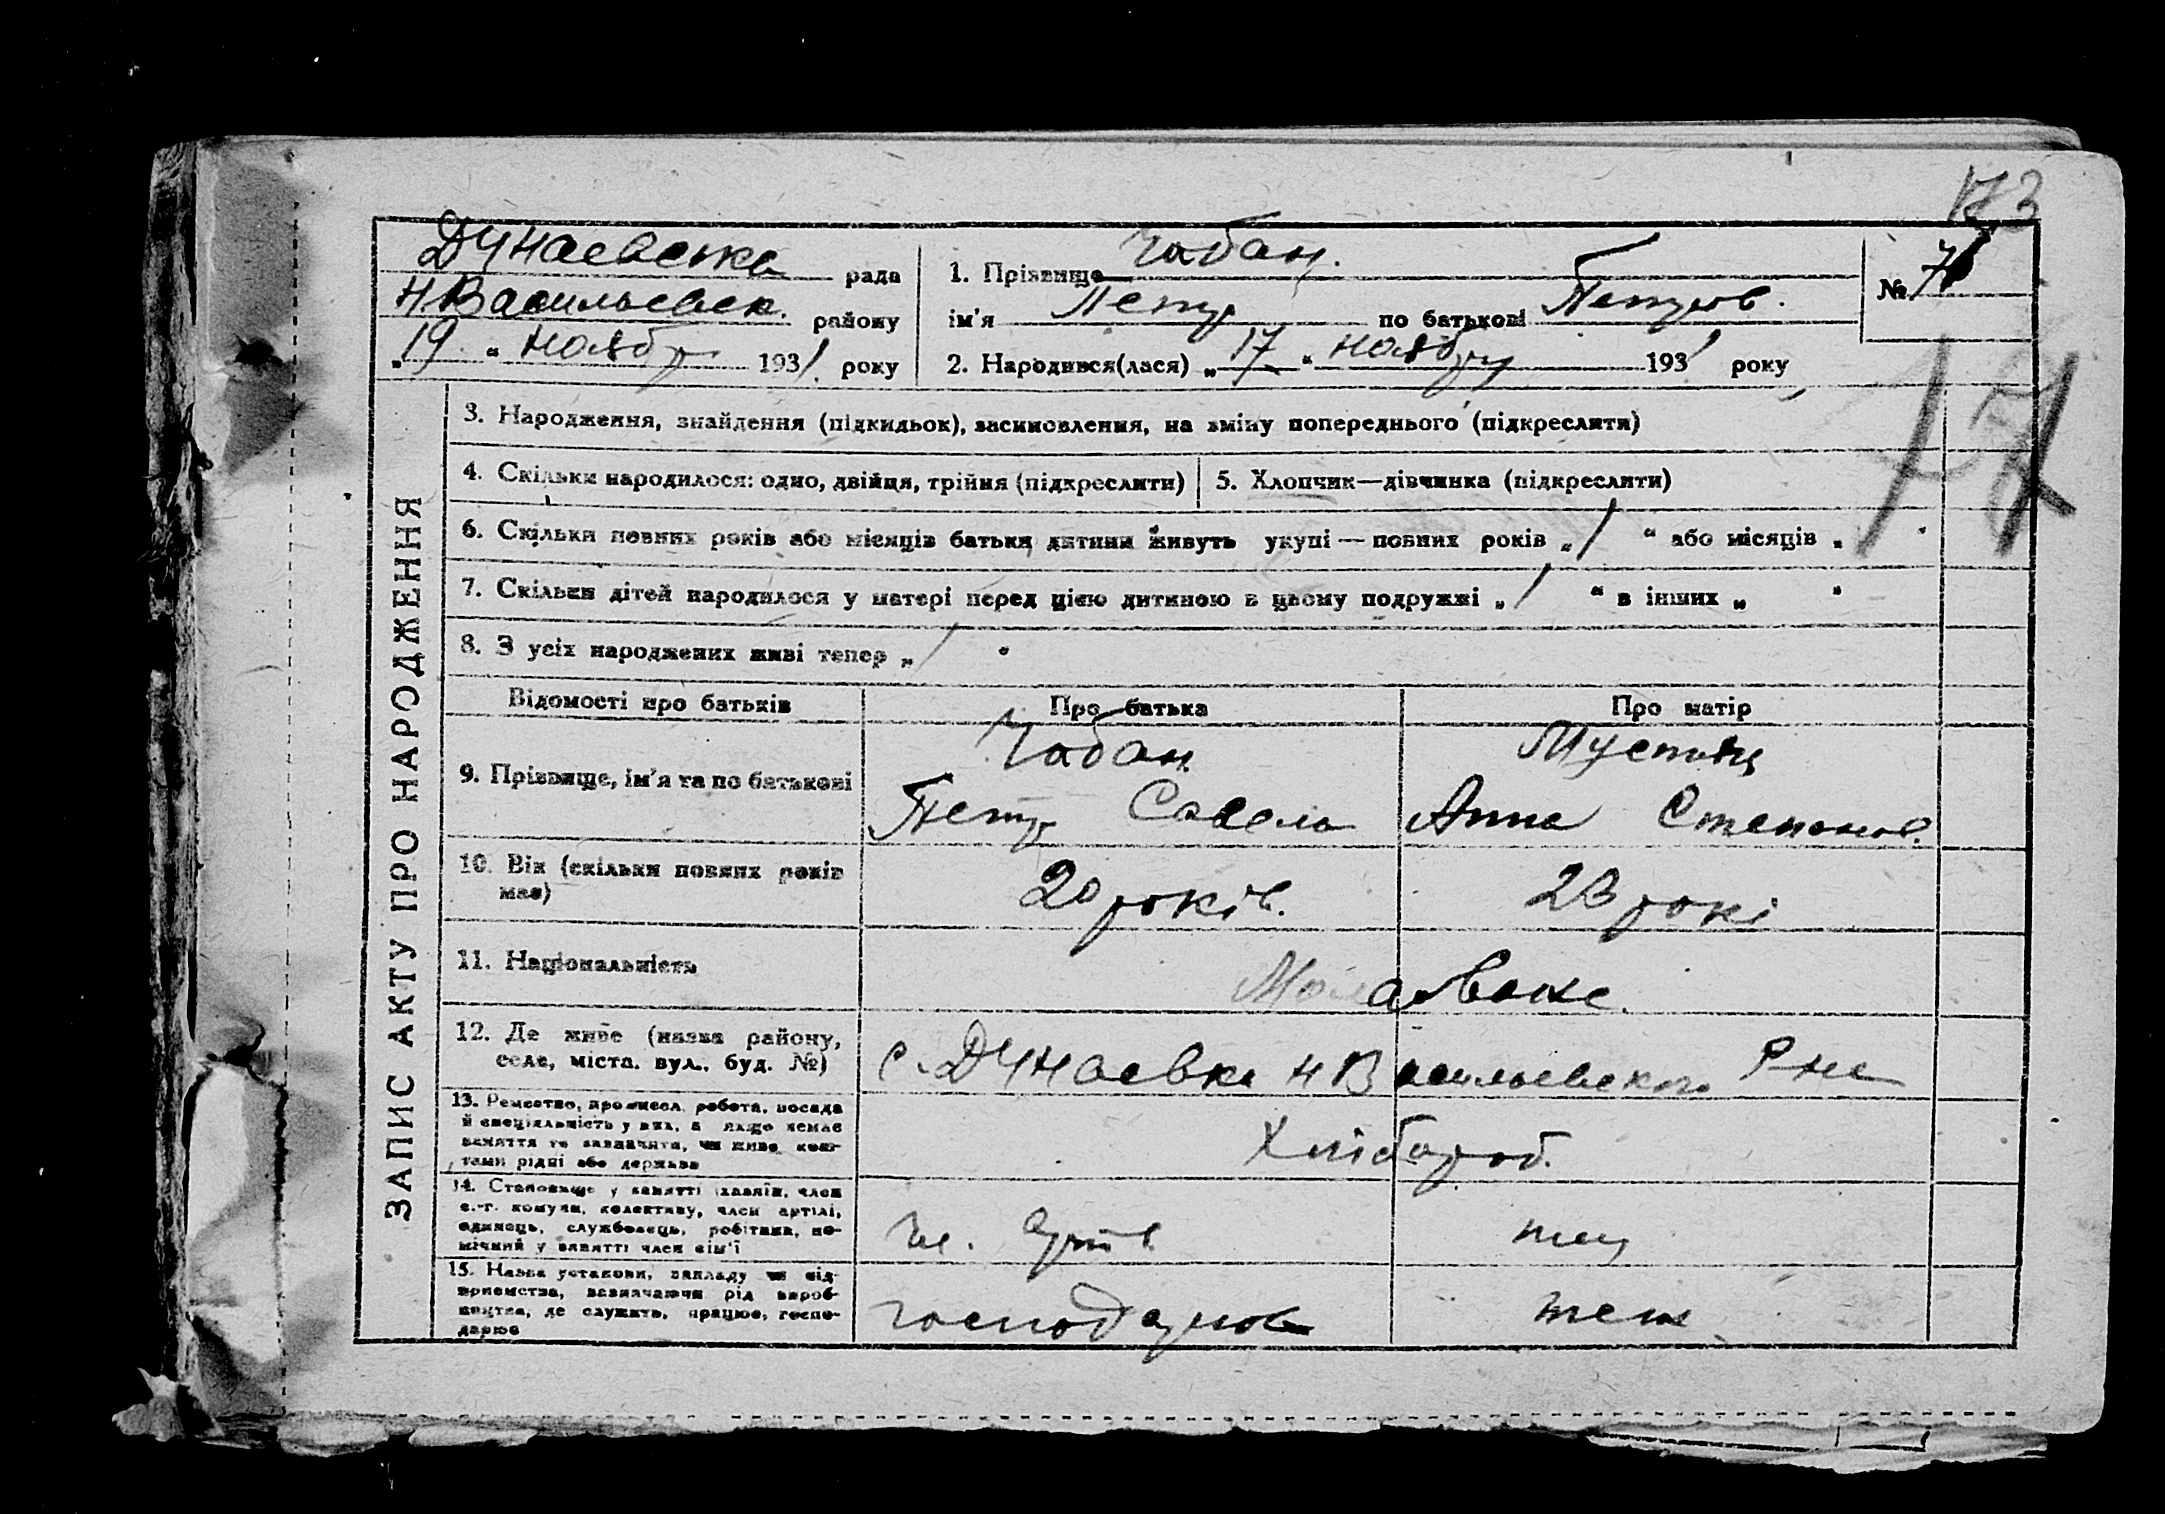 173
Дунаевська рада
Н.Васильевск. району
„19“ ноябр 1931 року
1. Прізвище Чабан.
ім'я Петр по батькові Петров.
2. Народився(лася) „17“ ноябр 1931 року
№ 7
17
ЗАПИС АКТУ ПРО НАРОДЖЕННЯ
3. Народження, знайдення (підкидьок), засиновлення, на зміну попереднього (підкреслити)
4. Скільки народилося: одно, двійця, трійня (підкреслити)
5. Хлопчик—дівчинка (підкреслити)
6. Скільки повних років або місяців батьки дитини живуть укупі — повних років „1“ або місяців „ “
7. Скільки дітей народилося у матері перед цією дитиною в цьому подружжі „1“ в інших „ “
8. З усіх народжених живі тепер „1“
Відомості про батьків Про батька Про матір
9. Прізвище, ім'я та по батькові
Чабан
Петр Савела
Анна Степанов.
10. Вік (скільки повних років
має)
20 років.
23 рокі
11. Національність
12. Де живе (назва району,
село, міста, вул., буд. №)
с. Дунаевка Н Васильевского Р-на
13. Ремество, промисел, робота, посада
й спеціяльність у них, а якщо немає
заняття то зазначити, чи живе кош-
тами рідні або держави
Хлібороб.
14. Становище у занятті (хазяїн, член
с.-г. комуни, колективу, член артілі,
одинець, службовець, робітник, по-
мічний у занятті член сім'ї
15. Назва установи, закладу чи під-
приємства, зазначаючи рід вироб-
ництва, де служить, працює, госпо-
дарює
теж